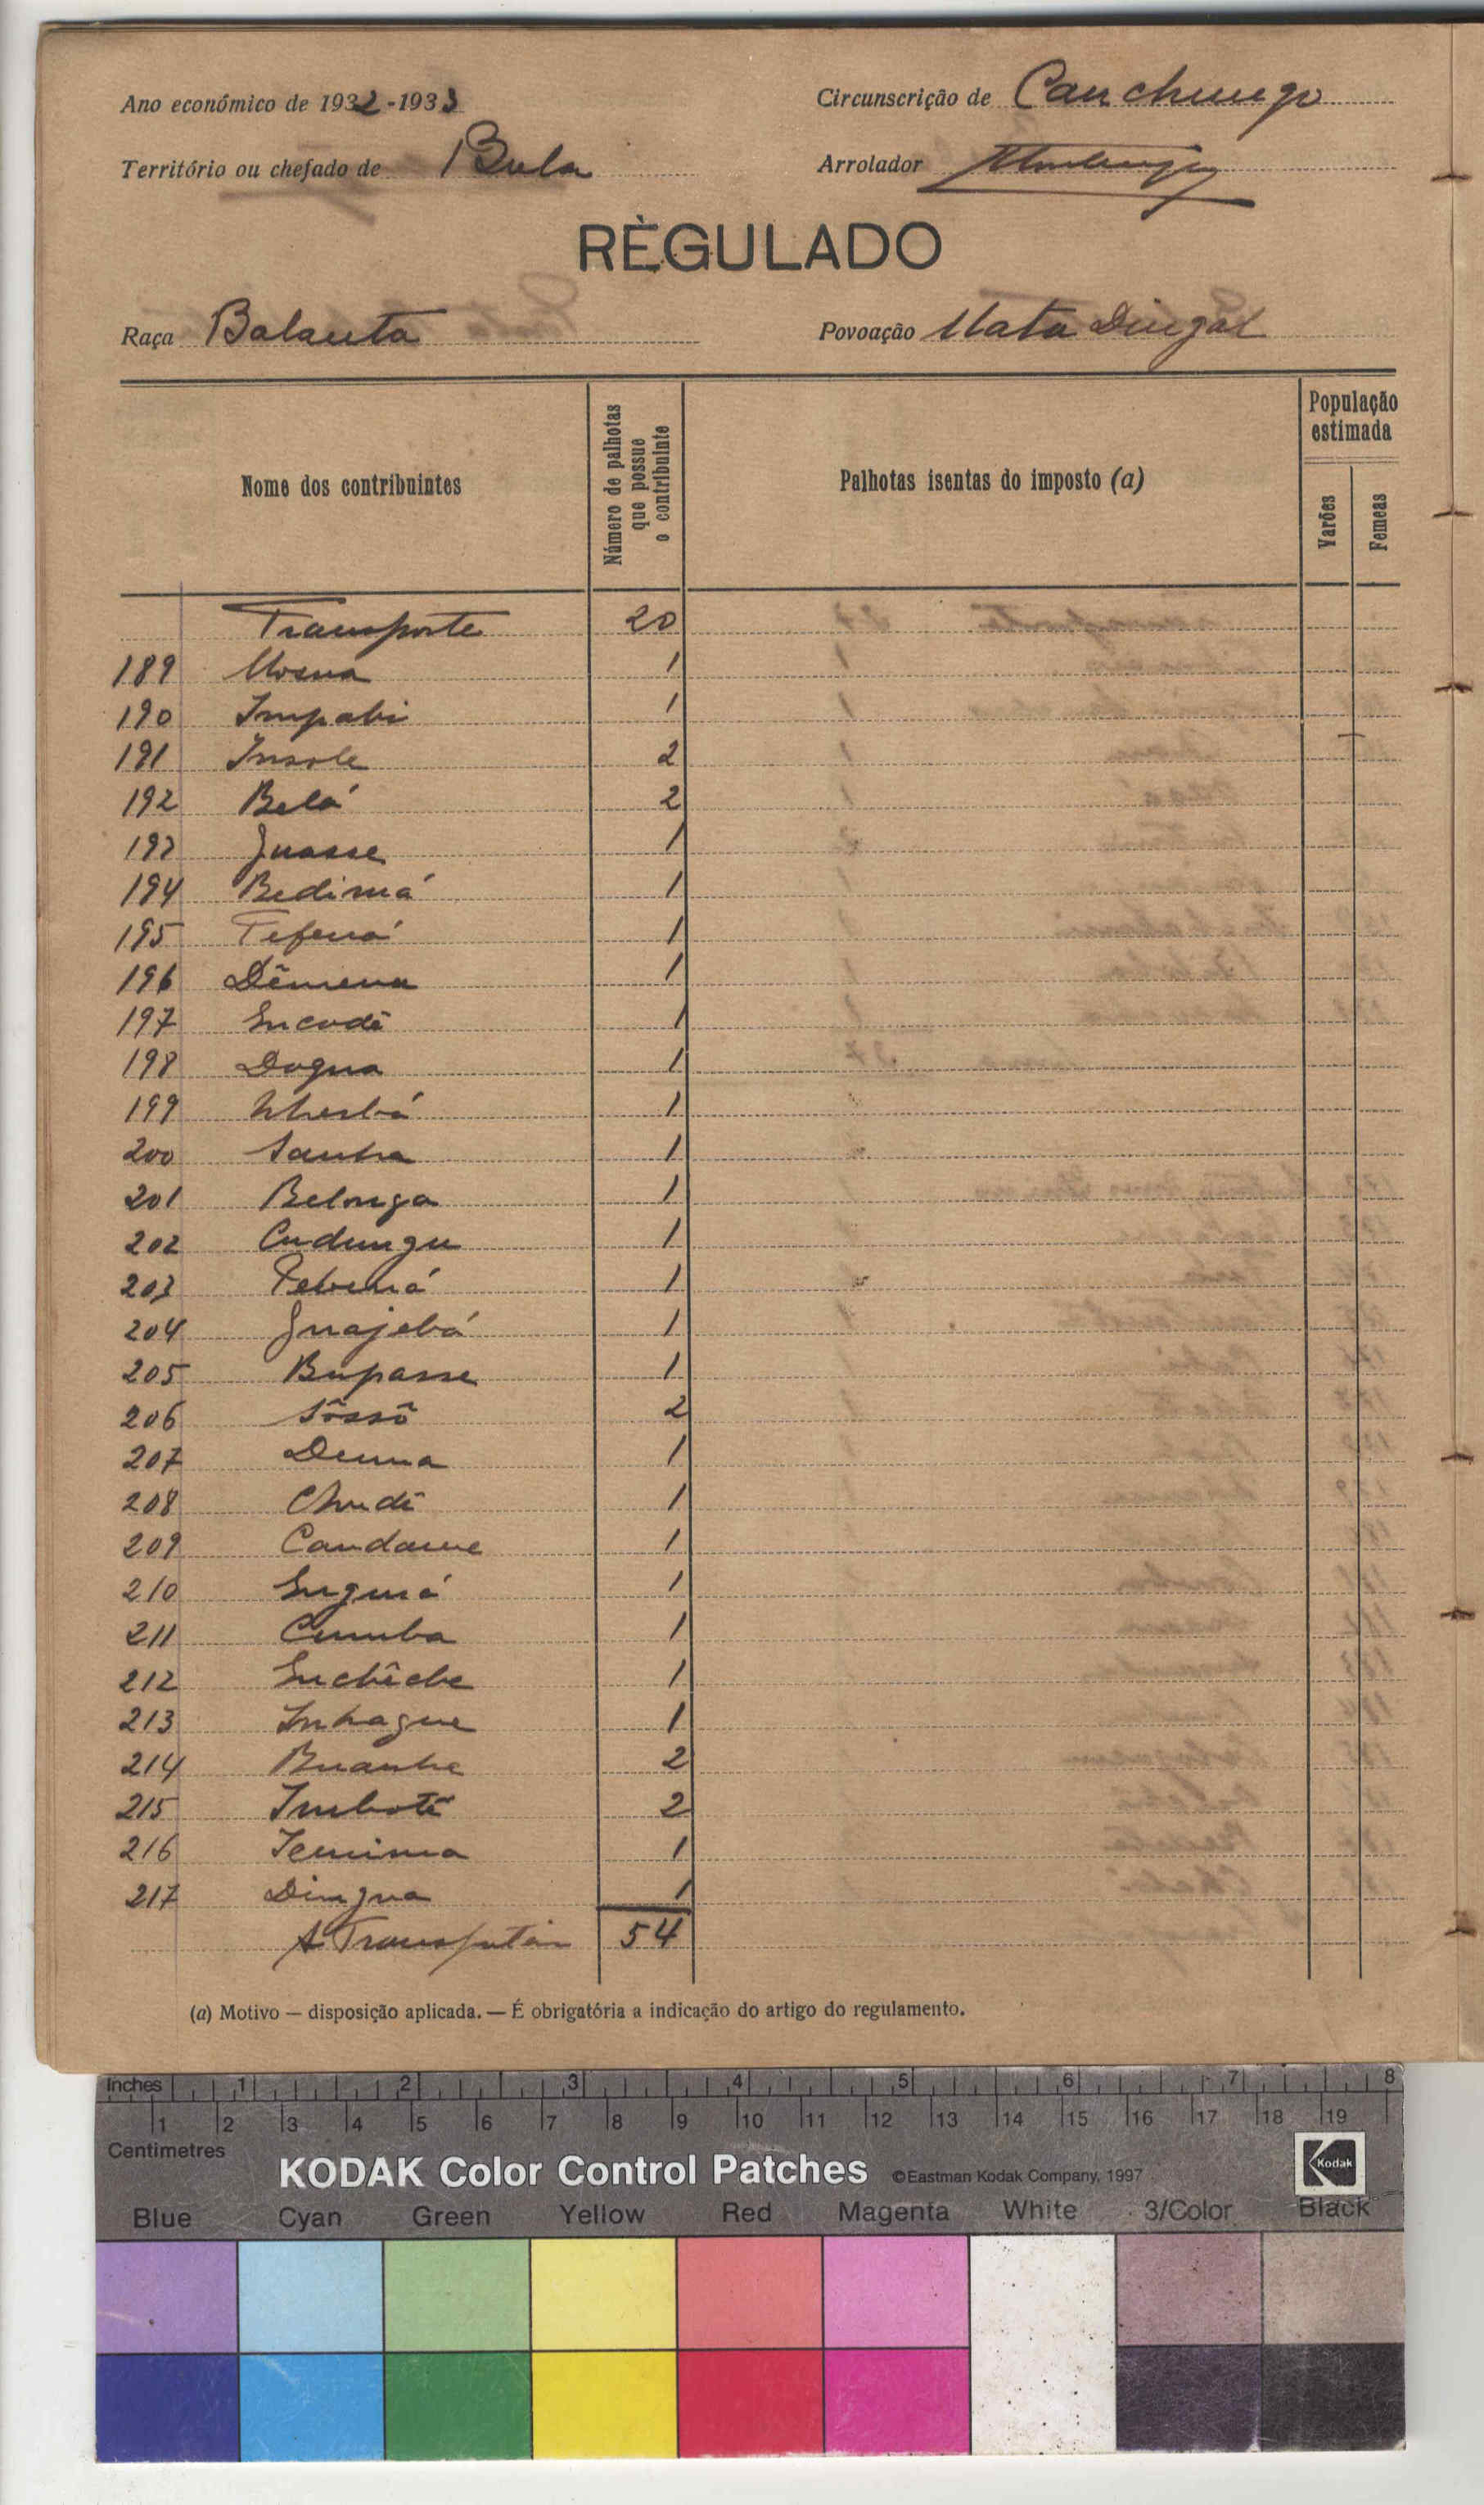 Ano económico de 1932-1933
Circunscrição de Canchungo
Território ou chefado de Bula
Arrolador
RÈGULADO
Raça Balanta
Povoação Mata Dingal
Nome dos contribuintes
Número de palhotas que possue o contribuinte
Palhotas isentas do imposto (a)
População estimada
Varões
Femeas
Transporte 20
189 1
190 Impabi 1
191 Insole 2
192 Belá 2
193 Juasse 1
194 Bedimá 1
195 Tefená 1
196 Dêmena 1
197 Encodê 1
198 Dogna 1
199 1
200 Santra 1
201 Belonga 1
202 Cudungu 1
203 1
204 Guajebá 1
205 Bupasse 1
206 Sôssô 2
207 Dunna 1
208 Chudê 1
209 Candame 1
210 1
211 Cumba 1
212 Enchêche 1
213 Inhague 1
214 2
215 Imbotê 2
216 1
217 Dingna 1
A Transportar 54
(a) Motivo — disposição aplicada. — É obrigatória a indicação do artigo do regulamento.
Inches 1 2 3 4 5 6 7 8
1 2 3 4 5 6 7 8 9 10 11 12 13 14 15 16 17 18 19
Centimetres
KODAK Color Control Patches ©Eastman Kodak Company, 1997 Kodak
Blue Cyan Green Yellow Red Magenta White 3/Color Black